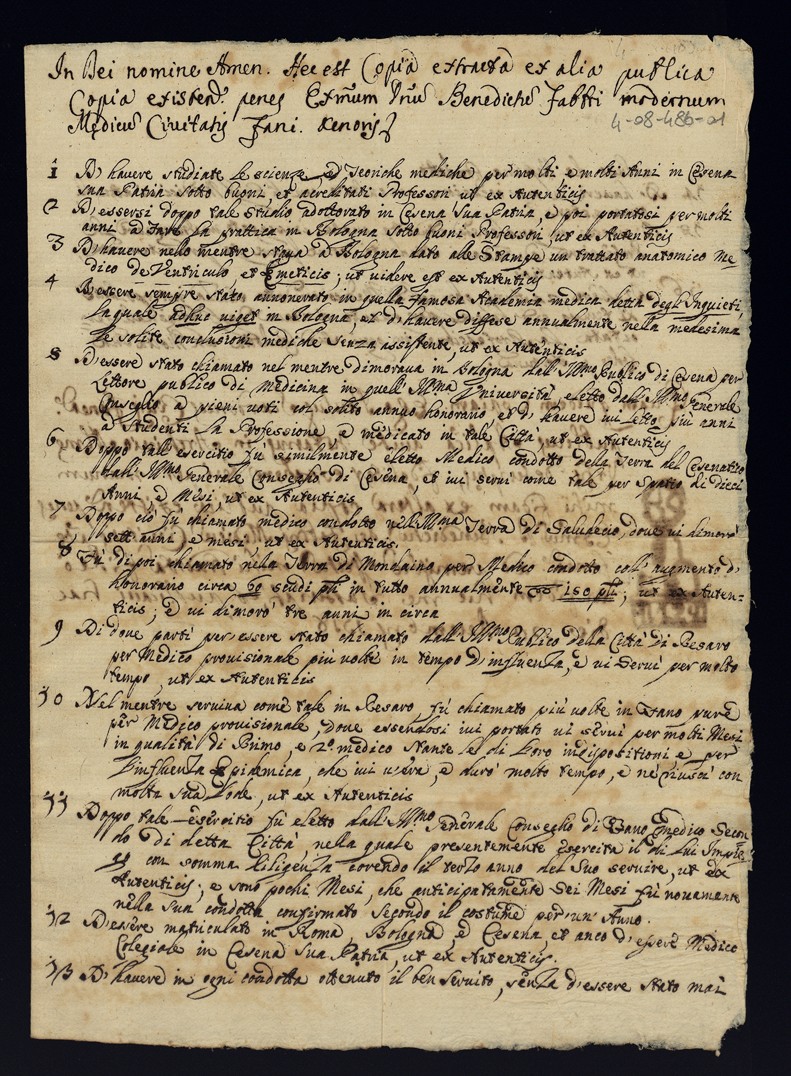 In Dei nomine Amen. Hec est Copia extracta ex alia publica
Copia existen. penes Exmum Dnu Benedictu Fabtti modernum
Medicu Civitatis Fani. tenoris
4-08-486-01
1 D'havere studiate le scienze, e Teoriche mediche per molti e molti Anni in Cesena
sua Patria sotto buoni, et acreditati Professori ut ex Autenticis
2 D'essersi doppo tale studio adottorato in Cesena sua Patria, e poi portatosi per molti
anni a fare la prattica in Bologna sotto buoni Professori, ut ex Autenticis
3 D'havere nello mentre stava a Bologna dato alle stampe un trattato anatomico me=
dico de Ventriculo, et Emeticis; ut videre est ex Autenticis
4 D'essere sempre stato annoverato in quella famosa Academia medica detta degl'Inquieti,
la quale adhuc viget in Bologna, et d'havere diffese annualmente nella medesima
le solite conclusioni mediche senza assistente, ut ex Autenticis
5 D'essere stato chiamato nel mentre dimorava in Bologna dall'Illmo Publico di Cesena per
Lettore publico di Medicina in quell'Illma Università, e letto dall'Illmo Generale
Conseglio a pieni voti col solito annuo honorario, et d'havere ivi letto sui anni
a Studenti la Professione, e medicato in tale Città, ut ex Autenticis
6 Doppo tall'esercitio fù similmente eletto Medico condotto della Terra del Cesenatico
dall'Illmo Generale Conseglio di Cesena, et ivi servì come tale per spatio di dieci
Anni, e Mesi, ut ex Autenticis
7 Doppo ciò fù chiamato medico condotto nell'Illma Terra di Saludecio, dove vi dimorò
sett'anni, e mesi ut ex Autenticis.
8 Fù di poi chiamato nella Terra di Mondaino per Medico condotto coll'augmento d'
honorario circa 60 scudi pti in tutto annualmente 150 pti; ut ex Auten=
ticis; e vi dimorò tre anni in circa
9 Di dove partì per essere stato chiamato dall'Illmo Publico della Città di Pesaro
per Medico provisionale più volte in tempo d'influenza, e vi servì per molto
tempo, ut ex Autenticis
10 Nel mentre serviva come tale in Pesaro, fù chiamato più volte in Fano pure
per Medico provisionale, dove essendosi ivi portato vi servì per molti Mesi
in qualità di Primo, e 2º medico stante le di loro indispositioni, e per
l'influenza Epidemica, che ivi v'era, e durò molto tempo, e ne riuscì con
molta sua Lode, ut ex Autenticis
11 Doppo tale esercitio fù eletto dall'Illmo Generale Conseglio di Fano Medico Secon
do di detta Città, nella quale presentemente esercita il di lui Impie=
go con somma diligenza corendo il terzo anno del suo servire, ut ex
Autenticis; e sono pochi Mesi, che anticipatamente sei Mesi fù novamente
nella sua condotta confirmato secondo il costume per un'Anno.
12 D'essere matriculato in Roma Bologna, e Cesena, et anco d'essere Medico
Colegiale in Cesena sua Patria, ut ex Autenticis.
13 D'havere in ogni condotta ottenuto il ben servito, senza d'essere stato mai